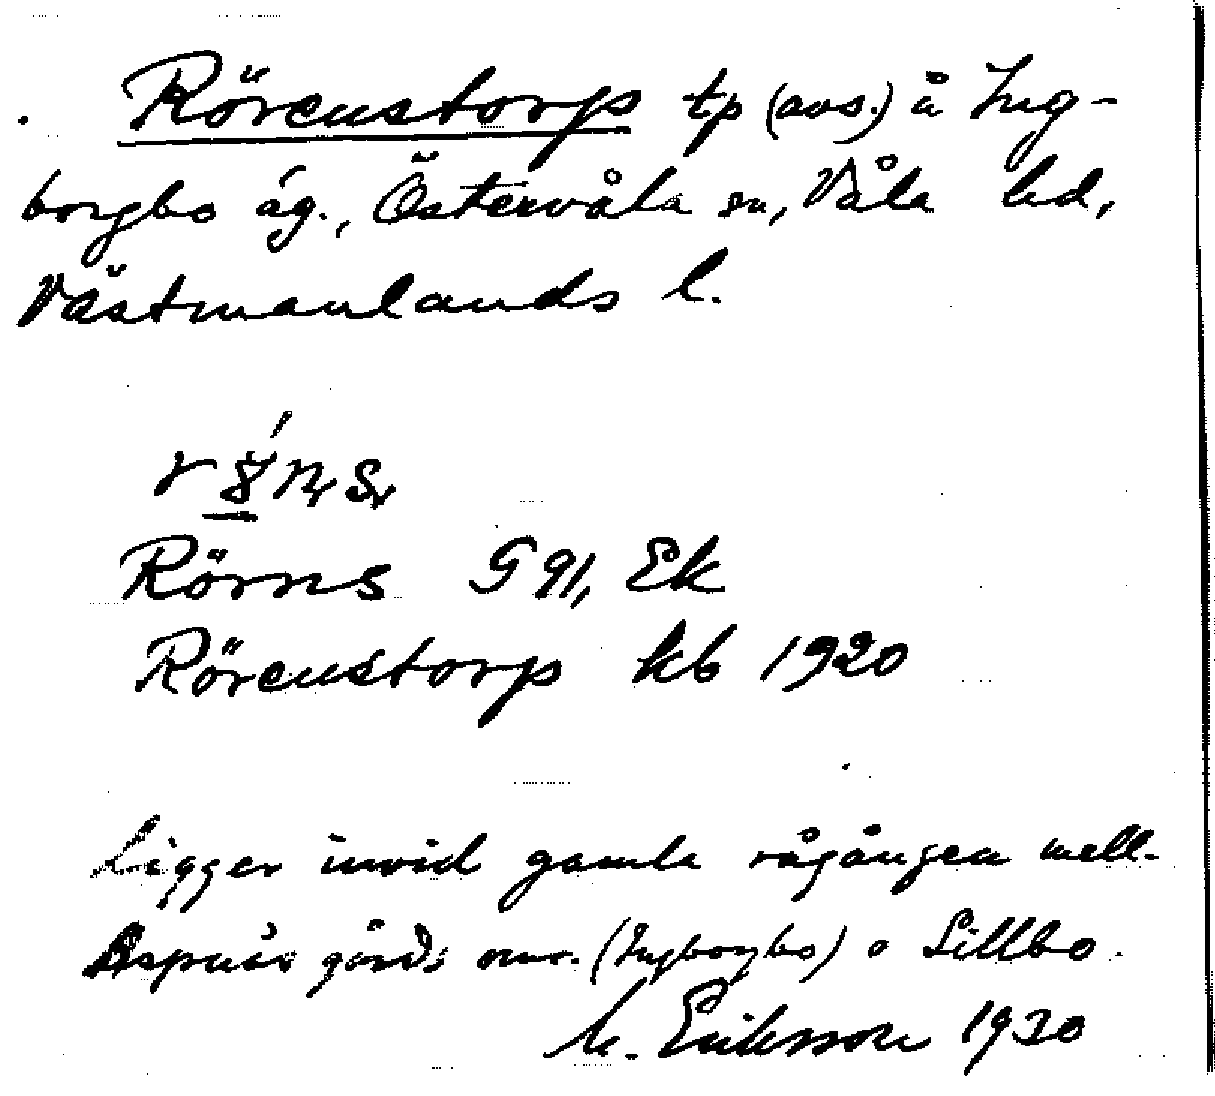 Rörenstorp tp (avs.) å Ing-
borgbo äg., Östervåla sn, Våla hd,
Västmanlands l.
Rörns G 91, Ek
Rörenstorp kb 1920
Ligger invid gamla rågången mell.
gårds omr. (Ingborgbo) o Lillbo.
M. Eriksson 1930